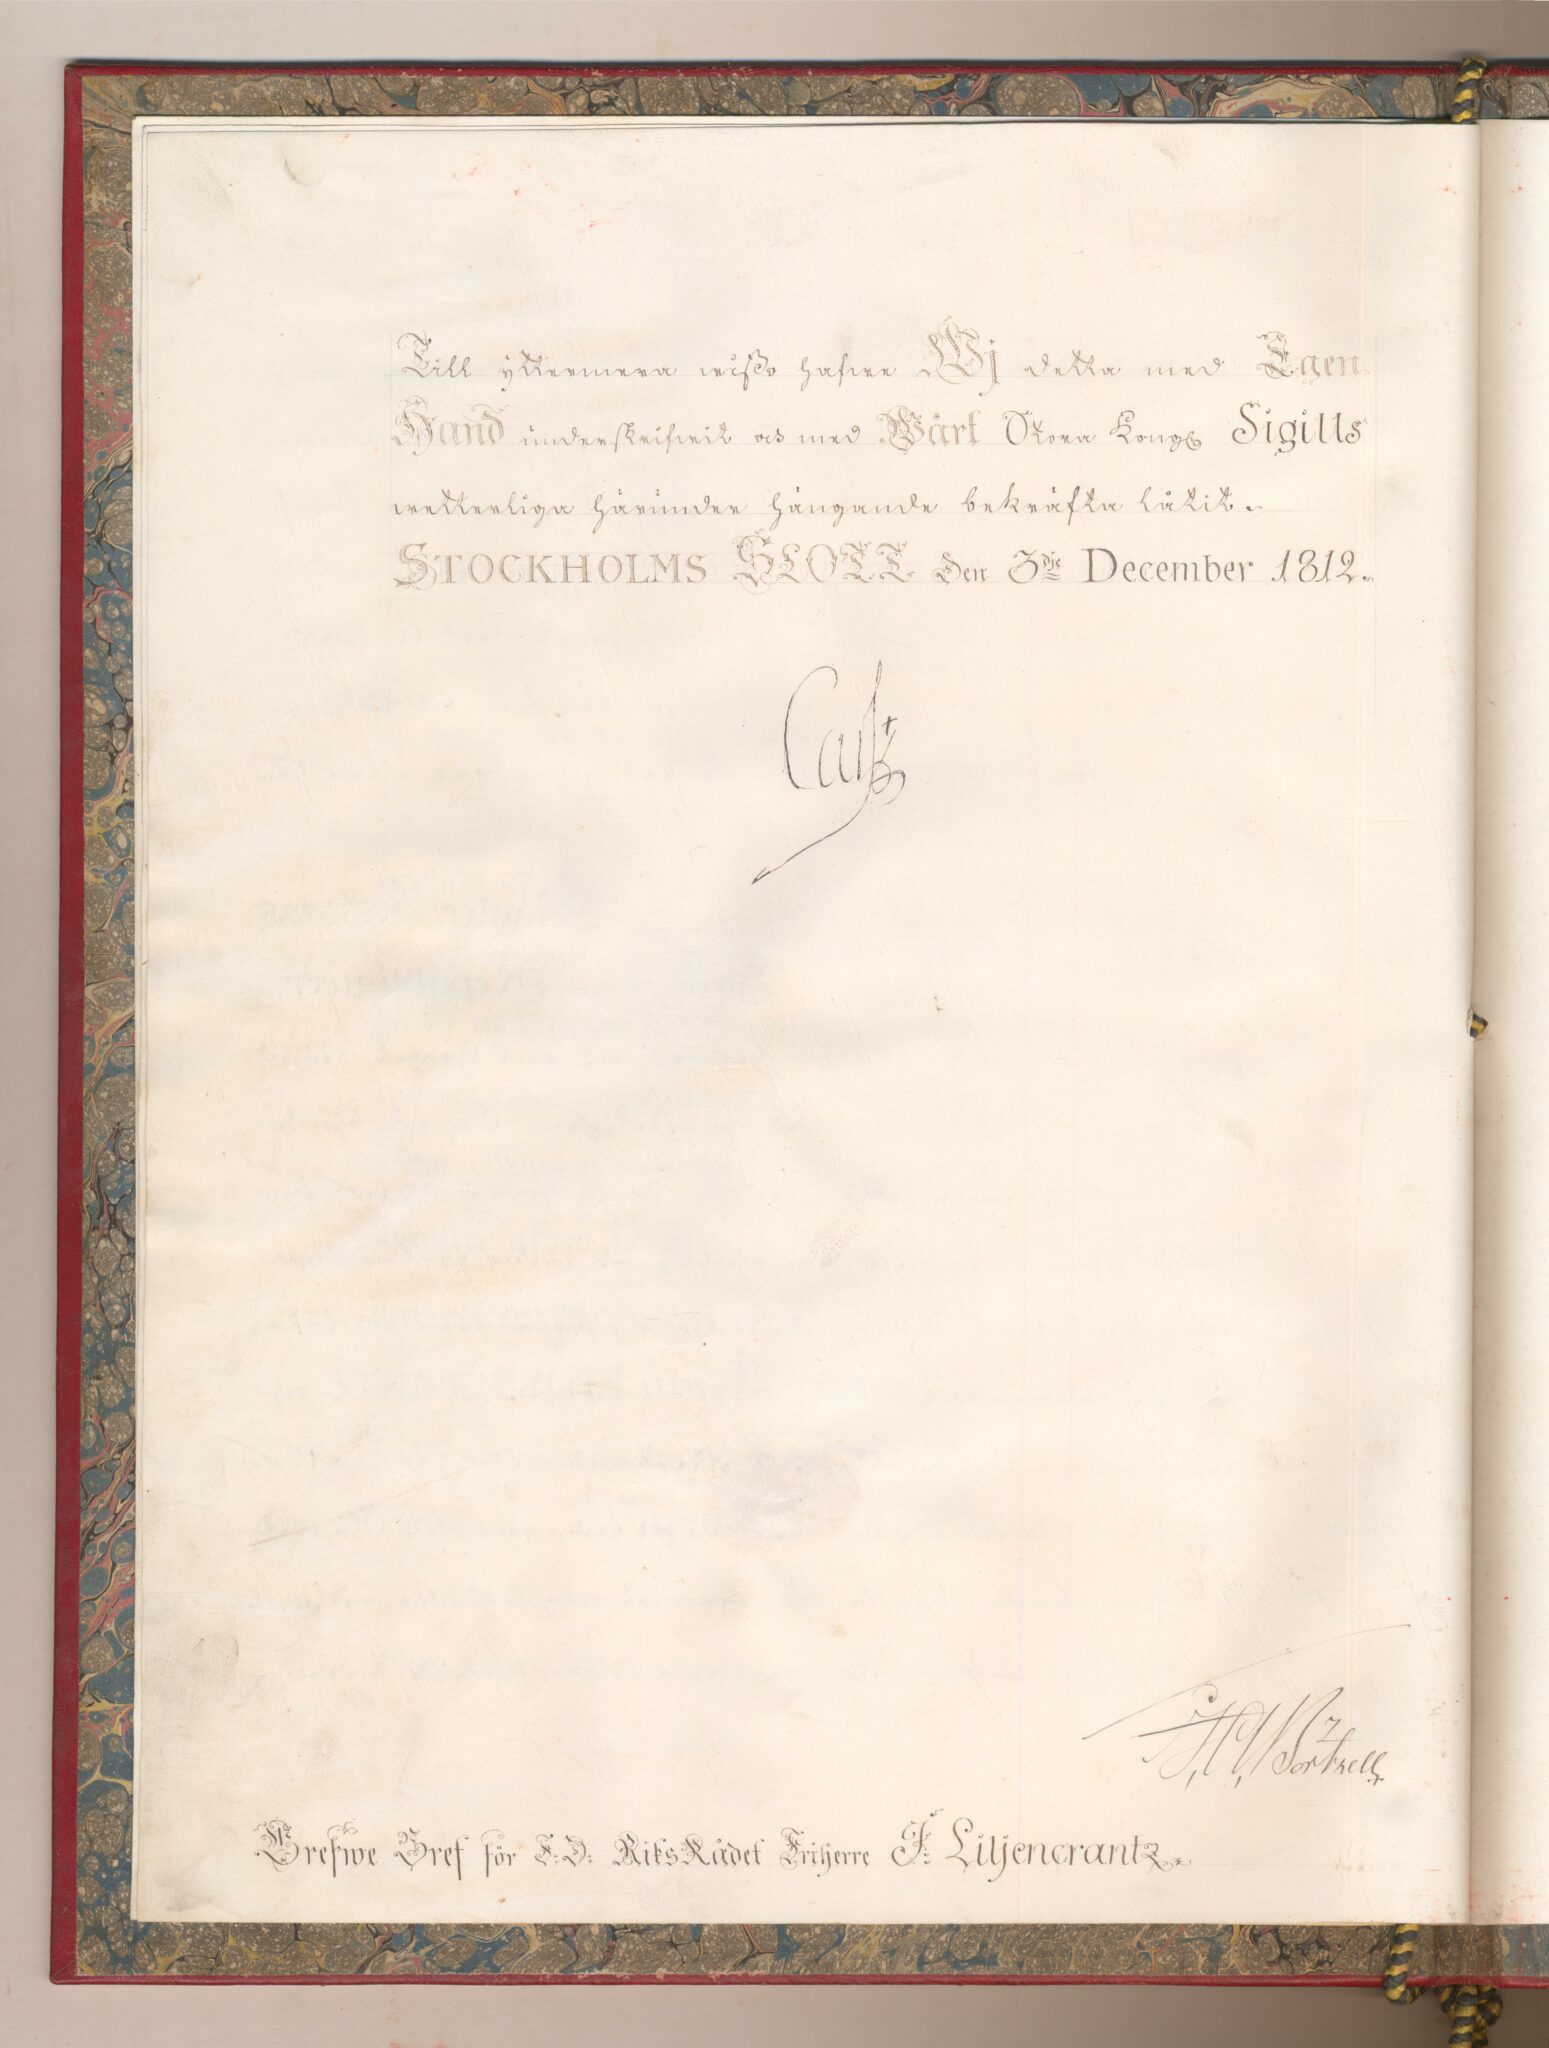 Till yttermera wißo hafwe Wj detta med Egen
Hand underskrifwit och med Wårt Stora Kongl Sigills
wetterliga härunder hängande bekräfta låtit.
STOCKHOLMS SLOTT den 3dje December 1812.
Carl
Grefwe Bref för F:D: RiksRådet Friherre J: Liljencrantz.